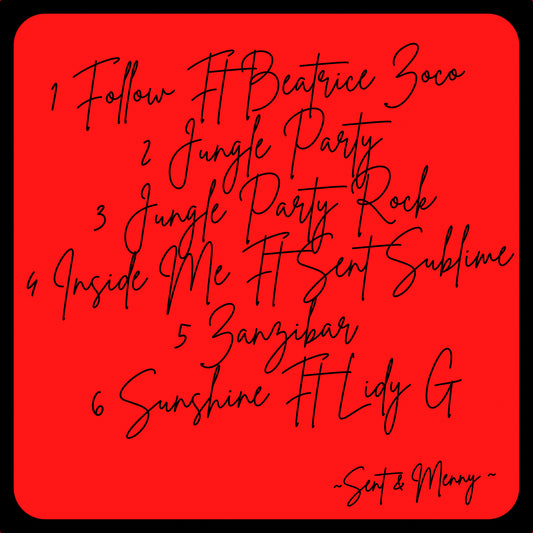 1 Follow Ft Beatrice Zoco
2 Jungle Party
3 Jungle Party Rock
4 Inside Me Ft Sent Sublime
5 Zanzibar
6 Sunshine Ft Lidy G
~Sent & Menny ~